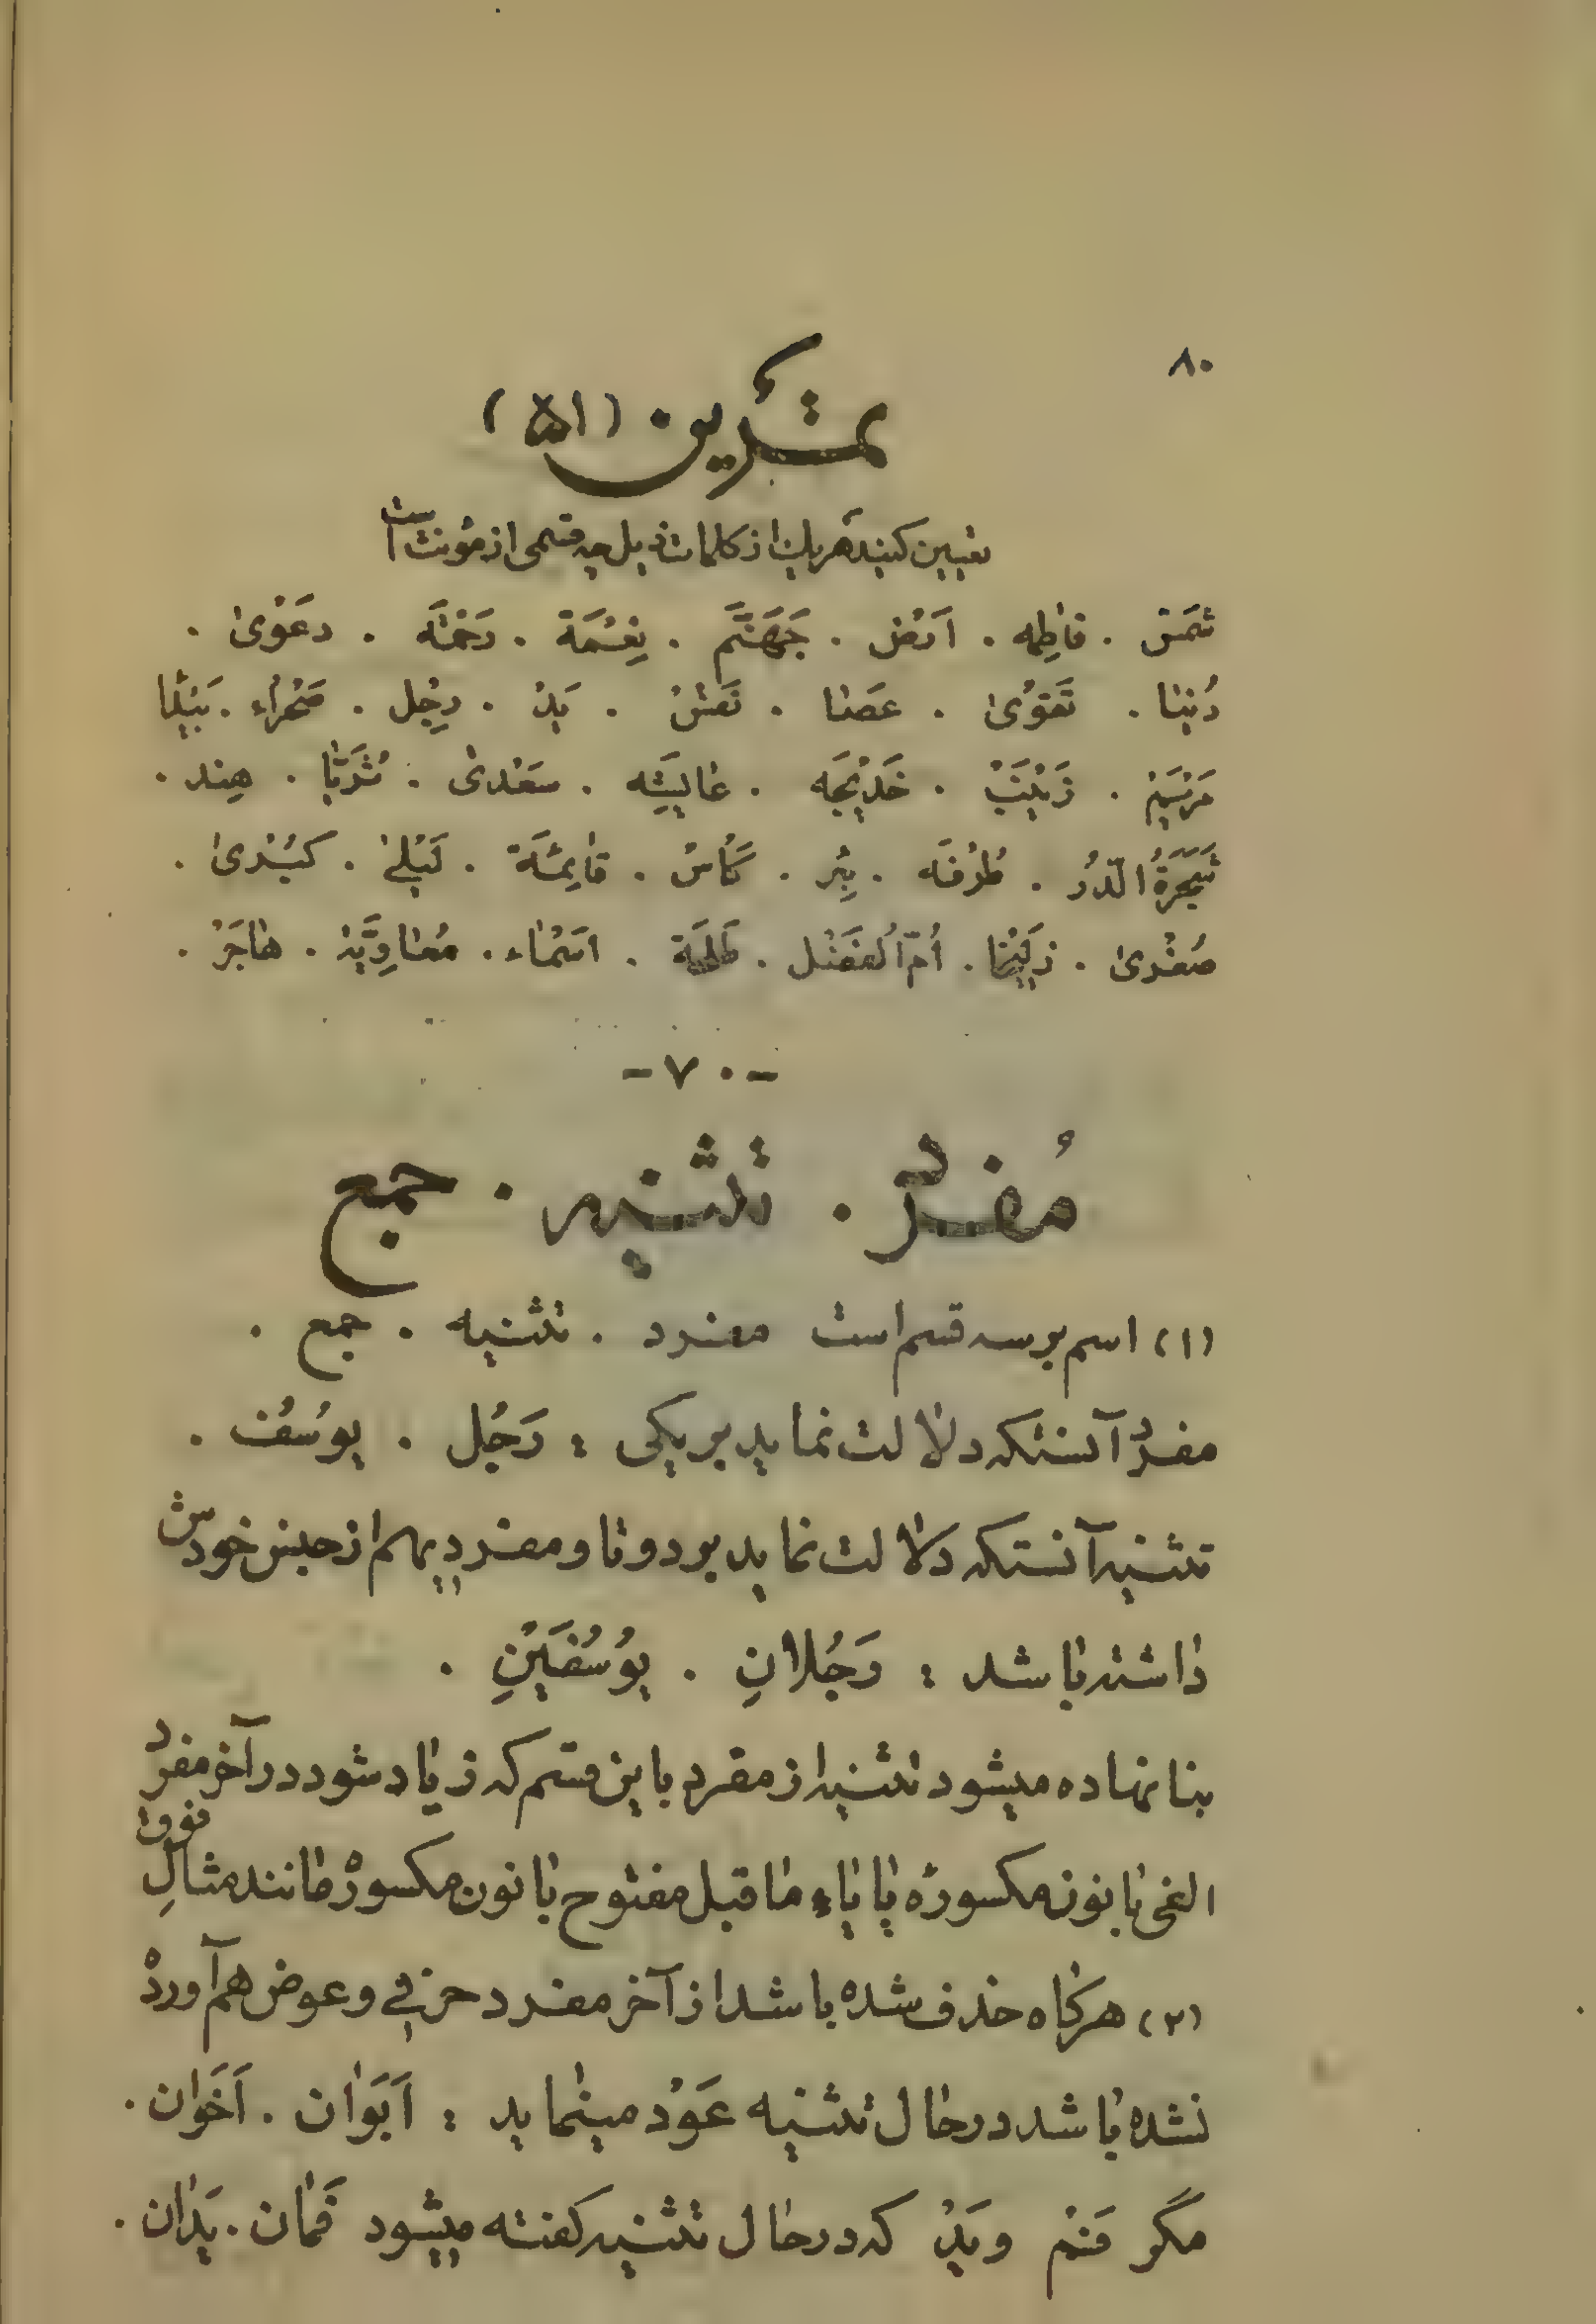 ۸۰
تمرین (۵۱)
تعیین کنید هر یک از کلمات ذیل چه قسمی از مؤنث است
شَمْس . فاطِمه . اَرْض . جَهَنَّم . نِعْمَة . رَحْمَتَه . دَعْوىٰ .
دُنیٰا . تَقْوىٰ . عَصٰا . نَفْسْ . یَدْ . رِجْل . صَحْراء .
مَرْیَمْ . زَیْنَبْ . خَدیْجَه . عایِشَه . سَعْدىٰ . ثُرَیّٰا . هِند .
شَجَرَةُ الدُّرُ . طُرْفَه . بِئر . کَأسْ . فاطِمَة . لَیْلىٰ . کُبْرىٰ .
صُغْرىٰ . زُلَیْخٰا . اُمّ الْفَضْل . طَلْحَة . اَسْمٰاء . مُعٰاوِیَة . هٰاجَرْ .
-۷۰-
مُفرد . تثنیه . جمع
(۱) اسم بر سه قسم است مفرد . تثنیه . جمع .
مفرد آنستکه دلالت نماید بر یکی : رَجُل . یوسُف .
تثنیه آنستکه دلالت نماید بر دو تا و مفردی هم از جنس خودش
داشته باشد : رَجُلانِ . یُوسُفَیْنِ .
بنا نهاده میشود تثنیه از مفرد باین قسم که زیاد شود در آخر مفرد
الفی با نون مکسوره یا یاء ماقبل مفتوح با نون مکسوره مانند مثالِ فوق
(۲) هرگاه حذف شده باشد از آخر مفرد حرفی و عوض هم آورده
نشده باشد در حال تثنیه عَوْد مینماید : اَبَوٰان . اَخَوٰان .
مگر فَمْ و یَدْ که در حال تثنیه گفته میشود فَمٰان . یَدٰان .